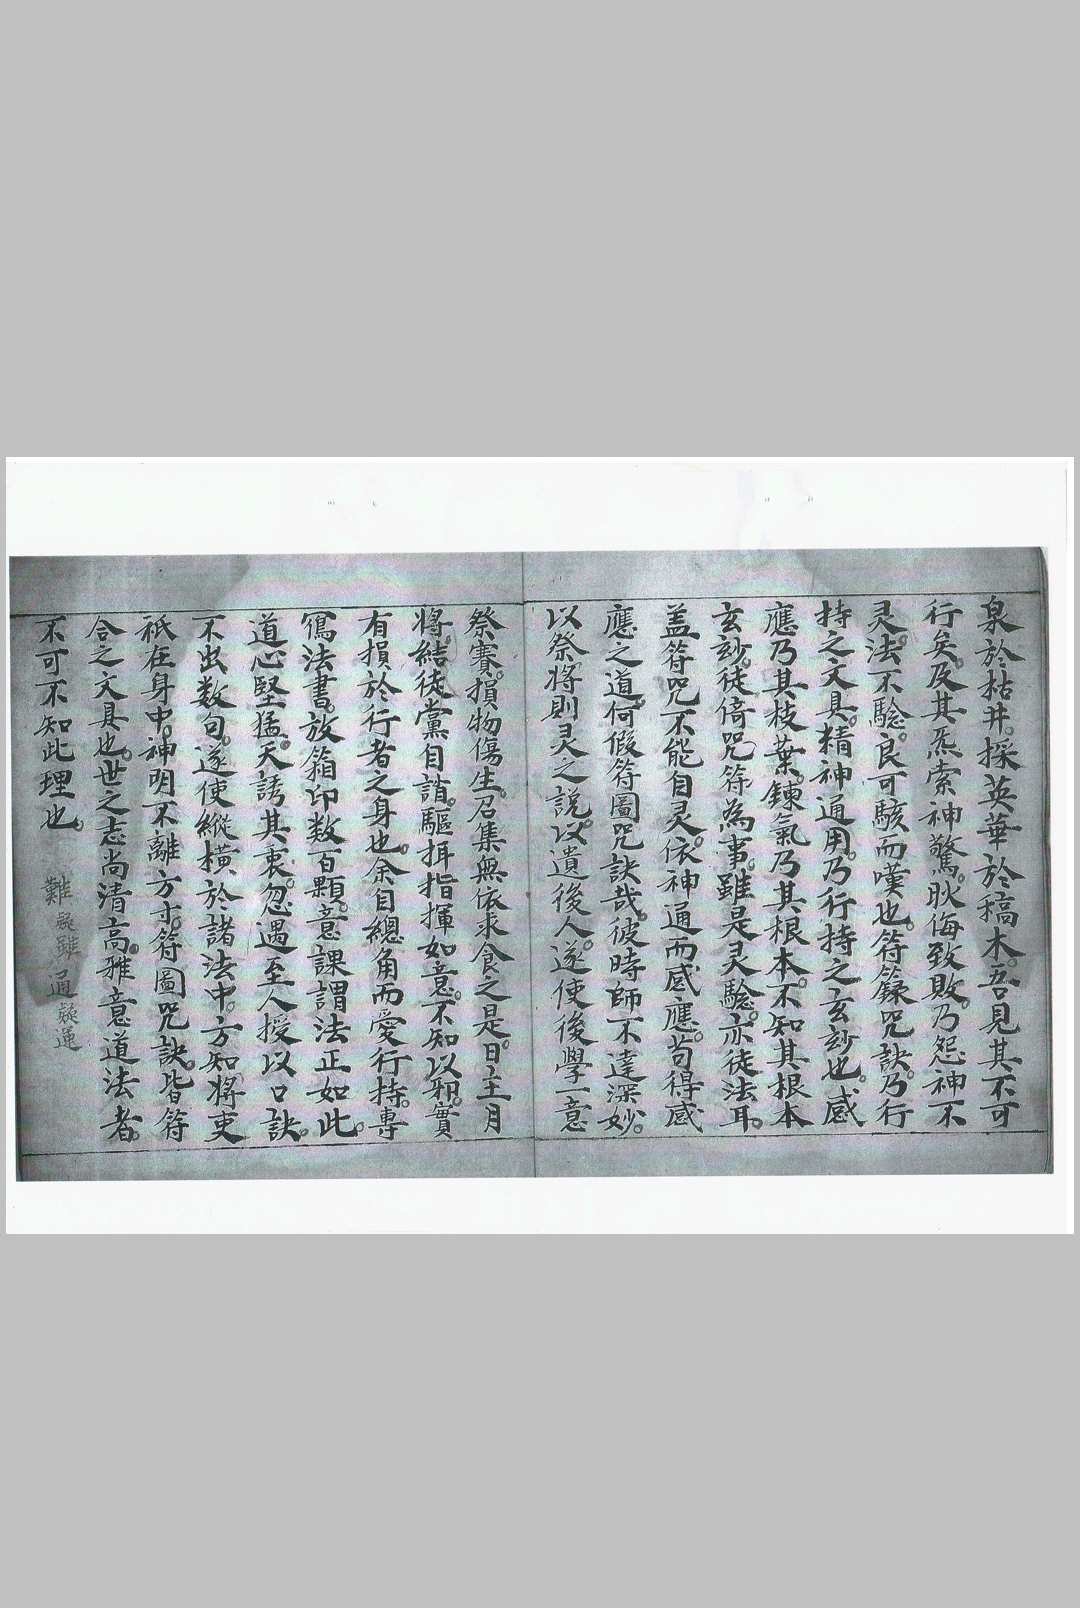 泉於枯井。採英華於稿木。吾見其不可
行矣。及其炁索神驚。耿悔致敗。乃怨神不
灵。法不驗。良可駭而嘆也。符籙咒訣。乃行
持之文具。精神通用。乃行持之玄玅也。感
應乃其枝葉。鍊氣乃其根本。不知其根本
玄玅。徒倚咒符為事。雖是灵驗。亦徒法耳。
盖符咒不能自灵。依神通而感應。苟得感
應之道。何假符圖咒訣哉。彼時師不達深妙。
以祭將則灵之說。以遺後人。遂使後學一意
祭賽。損物傷生。召集無依求食之是。日主月
將。結徒黨自諧。驅揖指揮如意。不知以邪。實
有損於行者之身也。余自總角而愛行持。專
寫法書。放箱印数百顆。意課謂法正如此。
道心堅猛。天誘其衷。忽遇至人。授以口訣。
不出数句。遂使縱橫於諸法中。方知將吏
祇在身中。神明不離方寸。符圖咒訣。皆符
合之文具也。世之志尚清高。雅意道法者。
不可不知此理也。
難疑難通疑運